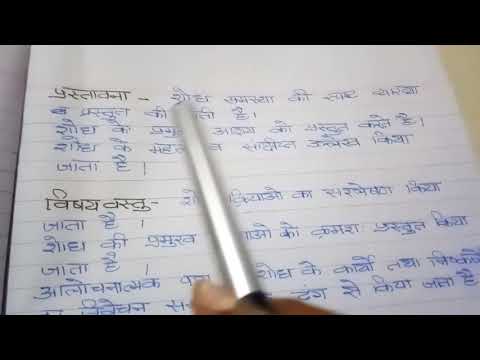 प्रस्तावना - शोध समस्या की स्पष्ट व्याख्या
व प्रस्तुत की जाती है।
शोध के प्रमुख को प्रस्तुत करते है।
शोध के व संक्षिप्त उल्लेख किया
जाता है।
विषय वस्तु- क्रियाओं का संश्लेषण किया
जाता है।
शोध की प्रमुख को क्रमशः प्रस्तुत किया
जाता है।
आलोचनात्मक शोध के कार्यों तथा निष्कर्षों
विवेचन ढंग से किया जाता है